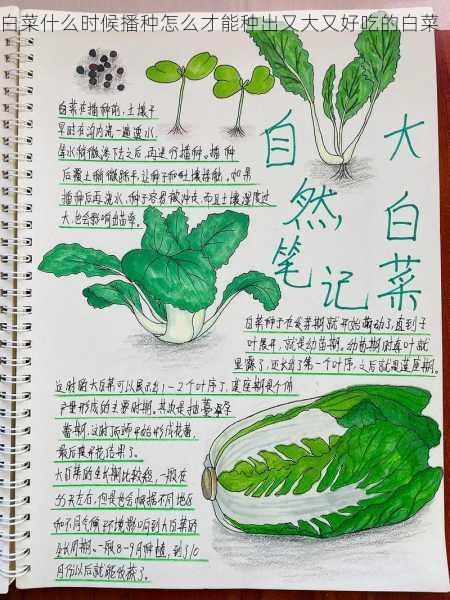 白菜什么时候播种怎么才能种出又大又好吃的白菜
白菜在播种前,土壤干
旱时在沟内浇一遍透水,
等水稍微渗下去之后,再进行播种。播种
后覆土稍微踩平,让种子和土壤接触,如果
播种后再浇水,种子容易被冲走,而且土壤湿度过
大,也会影响出苗率。
大白菜
自然笔记
白菜种子在发芽期就开始萌动了,直到子
叶展开,就是幼苗期。幼苗期时真叶就
显露了,还长出了第一个叶序,之后就是莲座期。
这时的大白菜可以展出1-2个叶序了,莲座期是个体
产量形成的主要时期,其次是抽薹
最后展开花结果了。
大白菜的生长期比较短,一般在
55天左右,但是也会根据不同地区
和不同气候环境影响到大白菜的
生长周期。一般8-9月种植,到了10
月份以后就能收获了。